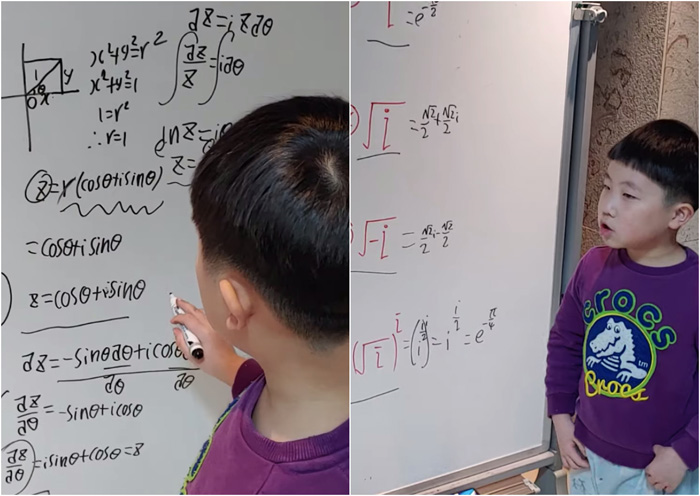 dz=izdθ
∫dz/z=∫idθ
x²+y²=r²
x²+y²=1
1=r²
∴r=1
1 y
θ
O x
lnZ=iθ
z=
z=r(cosθ+isinθ)
=cosθ+isinθ
z=cosθ+isinθ
dz=-sinθdθ+icosθ
dθ dθ
dz/dθ=-sinθ+icosθ
dz/dθ=isinθ+cosθ=z
i =e^-π/2
√i =√2/2+√2/2i
√-i =√2/2i-√2/2
(√i)^i=(i^1/2)^i=i^i/2=e^-π/4
crocs
Crocs